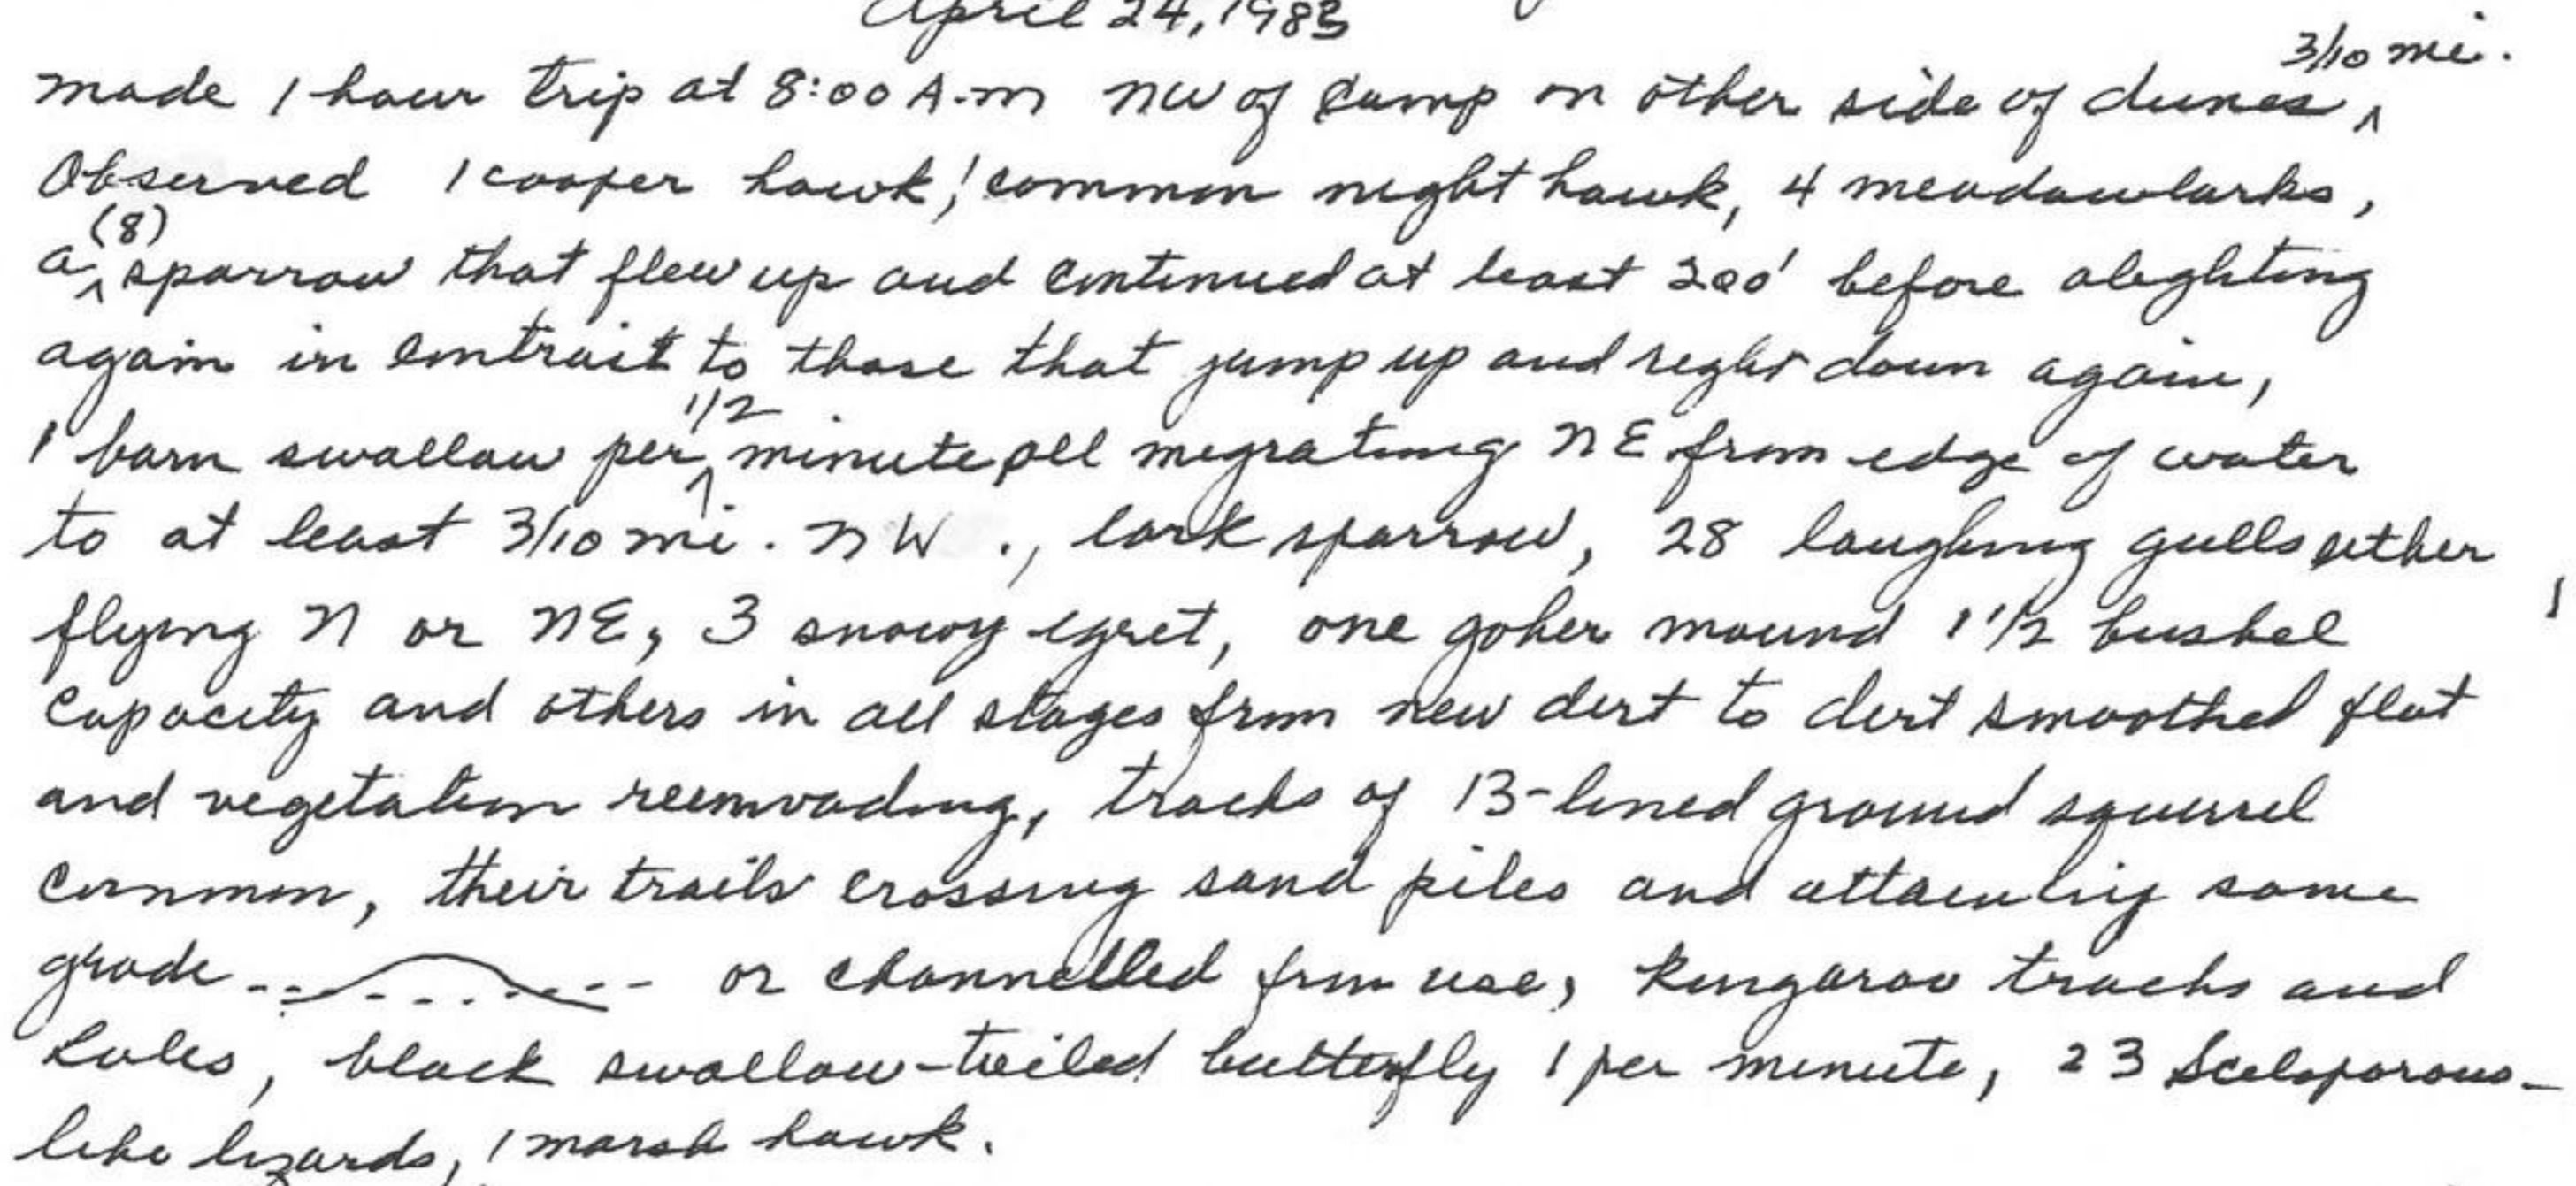 April 24, 1983
3/10 mi.
made 1 hour trip at 8:00 A.m NW of camp on other side of dunes ^
Observed 1 cooper hawk, 1 common night hawk, 4 meadowlarks,
a ^ (8) sparrow that flew up and continued at least 200' before alighting
again in contrast to those that jump up and right down again,
1 barn swallow per ^ 1/2 minute all migrating NE from edge of water
to at least 3/10 mi. NW ., lark sparrow, 28 laughing gulls either
flying N or NE, 3 snowy egret, one goher mound 1 1/2 bushel
capacity and others in all stages from new dirt to dirt smoothed flat
and vegetation reinvading, tracks of 13-lined ground squirrel
common, their trails crossing sand piles and attaining same
grade or channelled from use, kangaroo tracks and
holes, black swallow-tailed butterfly 1 per minute, 23 Sceloporous-
like lizards, 1 marsh hawk.